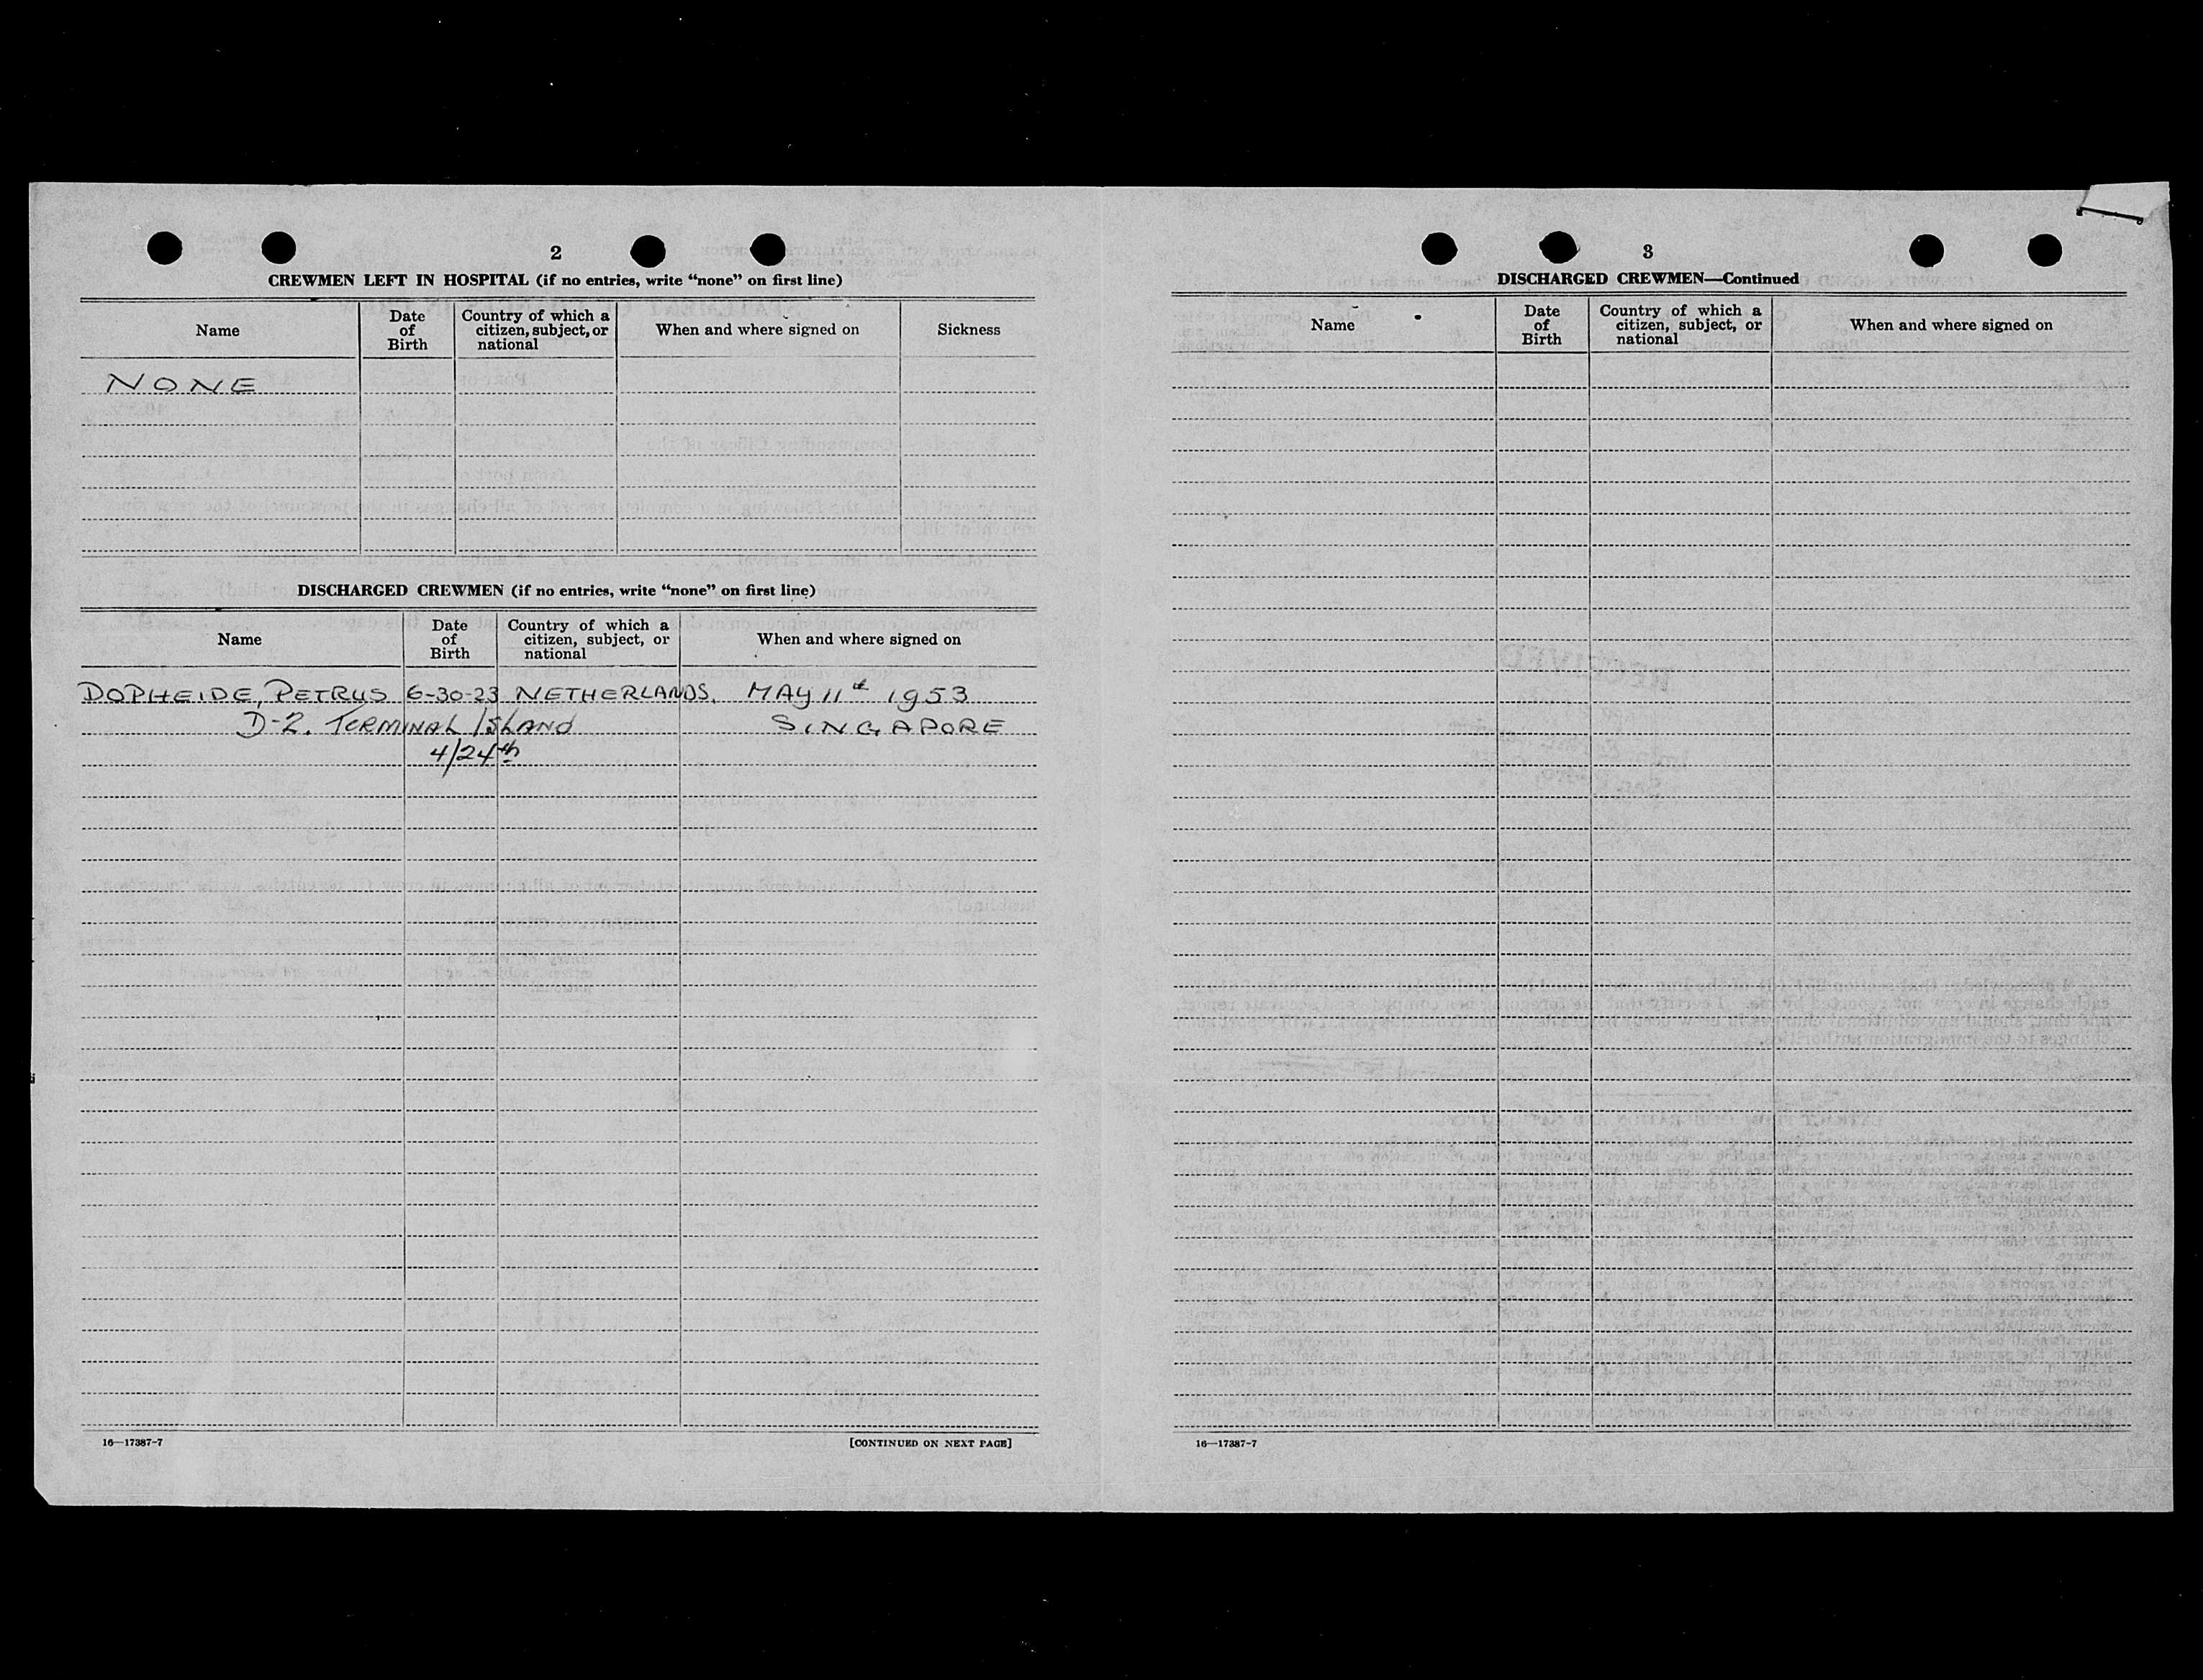 2
CREWMEN LEFT IN HOSPITAL (if no entries, write “none” on first line)
Name
Date of Birth
Country of which a citizen, subject, or national
When and where signed on
Sickness
NONE
DISCHARGED CREWMEN (if no entries, write “none” on first line)
Name
Date of Birth
Country of which a citizen, subject, or national
When and where signed on
DOPHEIDE, PETRUS 6-30-23 NETHERLANDS. MAY 11th 1953
D-2. TERMINAL ISLAND SINGAPORE
4/24th
16—17387-7
[CONTINUED ON NEXT PAGE]
3
DISCHARGED CREWMEN—Continued
Name
Date of Birth
Country of which a citizen, subject, or national
When and where signed on
16—17387-7